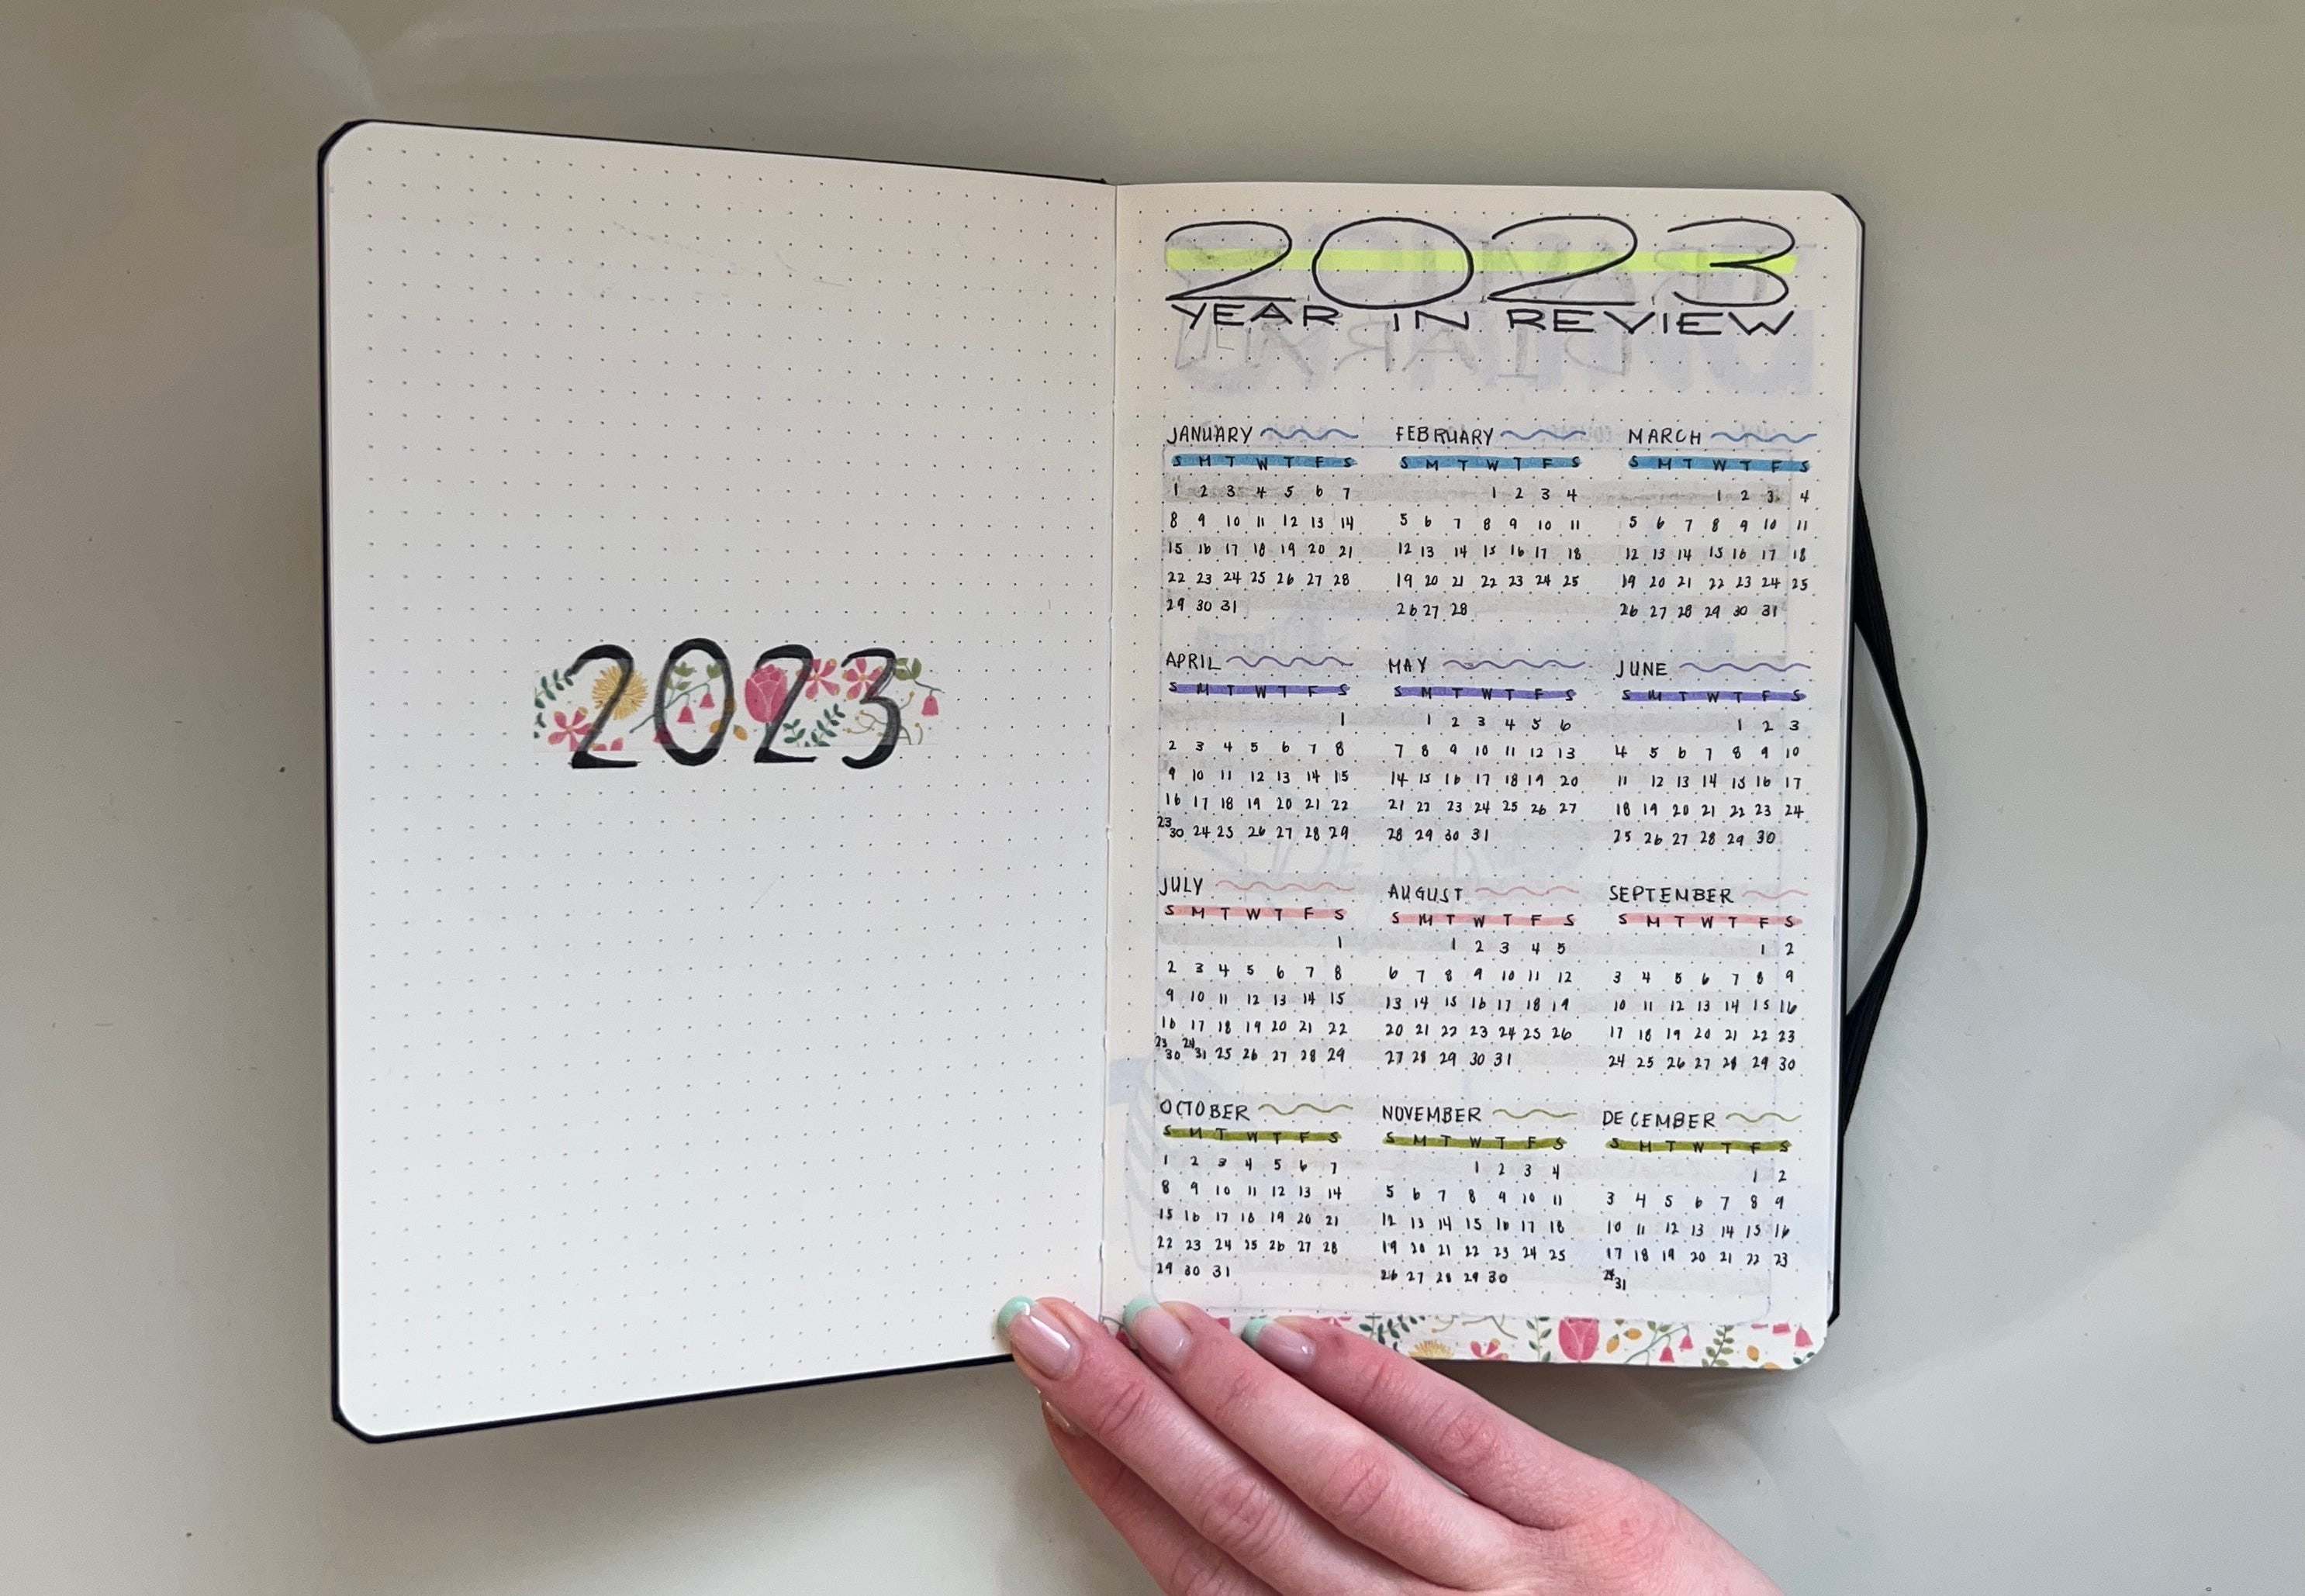 2023
2023
YEAR IN REVIEW
JANUARY FEBRUARY MARCH
S M T W T F S S M T W T F S S M T W T F S
1 2 3 4 5 6 7 1 2 3 4 1 2 3 4
8 9 10 11 12 13 14 5 6 7 8 9 10 11 5 6 7 8 9 10 11
15 16 17 18 19 20 21 12 13 14 15 16 17 18 12 13 14 15 16 17 18
22 23 24 25 26 27 28 19 20 21 22 23 24 25 19 20 21 22 23 24 25
29 30 31 26 27 28 26 27 28 29 30 31
APRIL MAY JUNE
S M T W T F S S M T W T F S S M T W T F S
1 1 2 3 4 5 6 1 2 3
2 3 4 5 6 7 8 7 8 9 10 11 12 13 4 5 6 7 8 9 10
9 10 11 12 13 14 15 14 15 16 17 18 19 20 11 12 13 14 15 16 17
16 17 18 19 20 21 22 21 22 23 24 25 26 27 18 19 20 21 22 23 24
23 30 24 25 26 27 28 29 28 29 30 31 25 26 27 28 29 30
JULY AUGUST SEPTEMBER
S M T W T F S S M T W T F S S M T W T F S
1 1 2 3 4 5 1 2
2 3 4 5 6 7 8 6 7 8 9 10 11 12 3 4 5 6 7 8 9
9 10 11 12 13 14 15 13 14 15 16 17 18 19 10 11 12 13 14 15 16
16 17 18 19 20 21 22 20 21 22 23 24 25 26 17 18 19 20 21 22 23
23 30 24 31 25 26 27 28 29 27 28 29 30 31 24 25 26 27 28 29 30
OCTOBER NOVEMBER DECEMBER
S M T W T F S S M T W T F S S M T W T F S
1 2 3 4 5 6 7 1 2 3 4 1 2
8 9 10 11 12 13 14 5 6 7 8 9 10 11 3 4 5 6 7 8 9
15 16 17 18 19 20 21 12 13 14 15 16 17 18 10 11 12 13 14 15 16
22 23 24 25 26 27 28 19 20 21 22 23 24 25 17 18 19 20 21 22 23
29 30 31 26 27 28 29 30 24 31